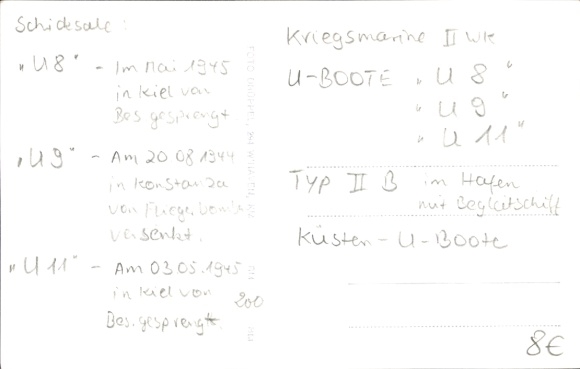 Schicksale :
"U 8" - Im Mai 1945
in Kiel von
Bes gesprengt
"U 9" - Am 20 08 1944
in Konstanza
von Fliegerbombe
versenkt.
"U 11" - Am 03.05.1945
in Kiel von
Bes. gesprengt.
200
Kriegsmarine II WK
U-BOOTE "U 8"
"U 9"
"U 11"
TYP II B im Hafen
mit Begleitschiff
Küsten-U-Boote
8€